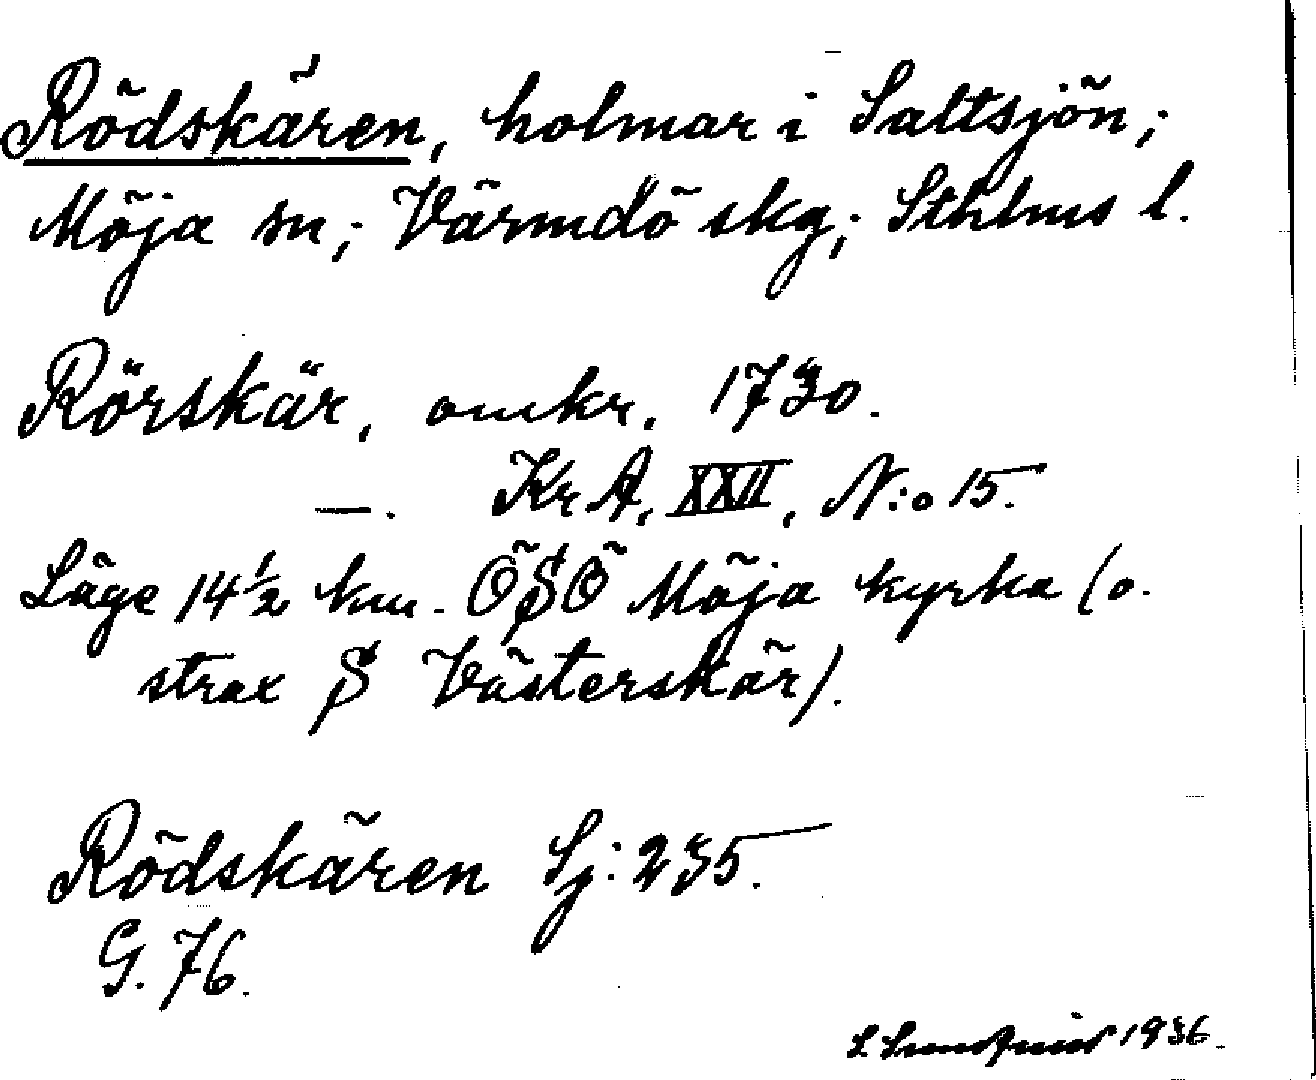 Rödskären, holmar i Saltsjön;
Möja sn; Värmdö skg; Sthlms l.
Rörskär, omkr. 1730.
—. KrA, XXII, N:o 15.
Läge 14½ km. ÖSÖ Möja kyrka (o.
strax S Västerskär).
Rödskären Sj: 235.
G. 76.
S. Lundquist 1936.